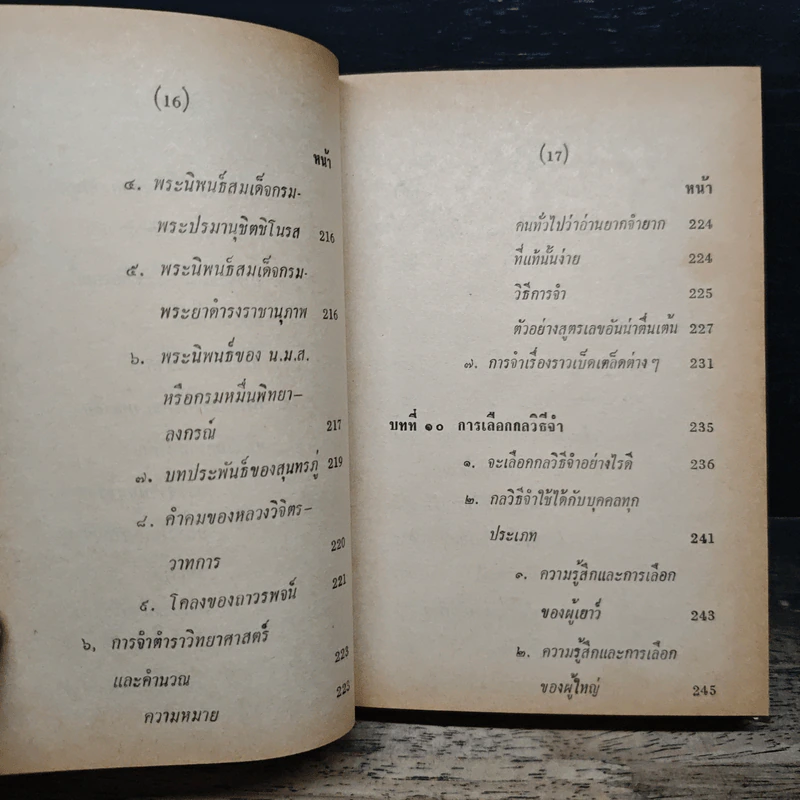 (16)
หน้า
๔. พระนิพนธ์สมเด็จกรม-
พระปรมานุชิตชิโนรส 216
๕. พระนิพนธ์สมเด็จกรม-
พระยาดำรงราชานุภาพ 216
๖. พระนิพนธ์ของ น.ม.ส.
หรือกรมหมื่นพิทยา-
ลงกรณ์ 217
๗. บทประพันธ์ของสุนทรภู่ 219
๘. คำคมของหลวงวิจิตร-
วาทการ 220
๙. โคลงของถาวรพจน์ 221
๖. การจำตำราวิทยาศาสตร์
และคำนวณ 223
ความหมาย 223
(17)
หน้า
คนทั่วไปว่าอ่านยากจำยาก 224
ที่แท้นั้นง่าย 224
วิธีการจำ 225
ตัวอย่างสูตรเลขอันน่าตื่นเต้น 227
๗. การจำเรื่องราวเบ็ดเตล็ดต่าง ๆ 231
บทที่ ๑๐ การเลือกกลวิธีจำ 235
๑. จะเลือกกลวิธีจำอย่างไรดี 236
๒. กลวิธีจำใช้ได้กับบุคคลทุก
ประเภท 241
๑. ความรู้สึกและการเลือก
ของผู้เยาว์ 243
๒. ความรู้สึกและการเลือก
ของผู้ใหญ่ 245